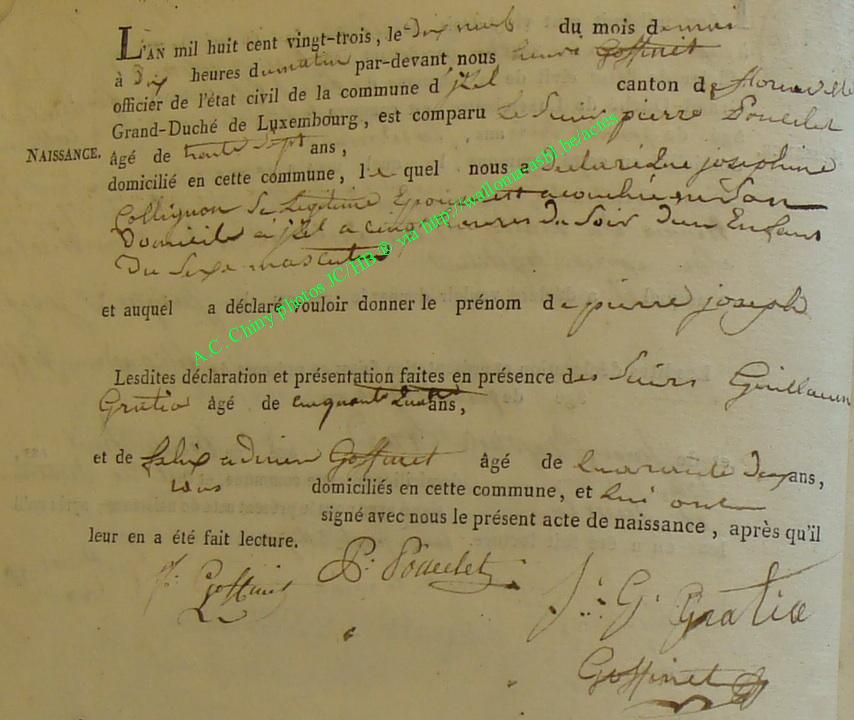 L'AN mil huit cent vingt-trois, le dix neuf du mois de mai
à dix heures du matin par-devant nous henri Goffinet
officier de l'état civil de la commune d'jzel canton de florenville
Grand-Duché de Luxembourg, est comparu le Sieur pierre Poncelet
NAISSANCE. âgé de trente Sept ans,
domicilié en cette commune, le quel nous a declaré que josephine
Collignon Sa Legitime Epouse est acouchée en Son
Domicile a jzel a cinq heures du Soir d'un Enfant
du Sexe masculin
et auquel a déclaré vouloir donner le prénom de pierre joseph
Lesdites déclaration et présentation faites en présence des Suirs Guillaume
Gratia âgé de cinquante quatre ans,
et de felix adrien Goffinet âgé de quarante deux ans,
tous domiciliés en cette commune, et qui ont
signé avec nous le présent acte de naissance, après qu'il
leur en a été fait lecture.
Goffinet P. Poncelet J. G. Gratia
Goffinet
A.C. Chiny photos JC/HB ® via http://wallonia.asbl.be/actes